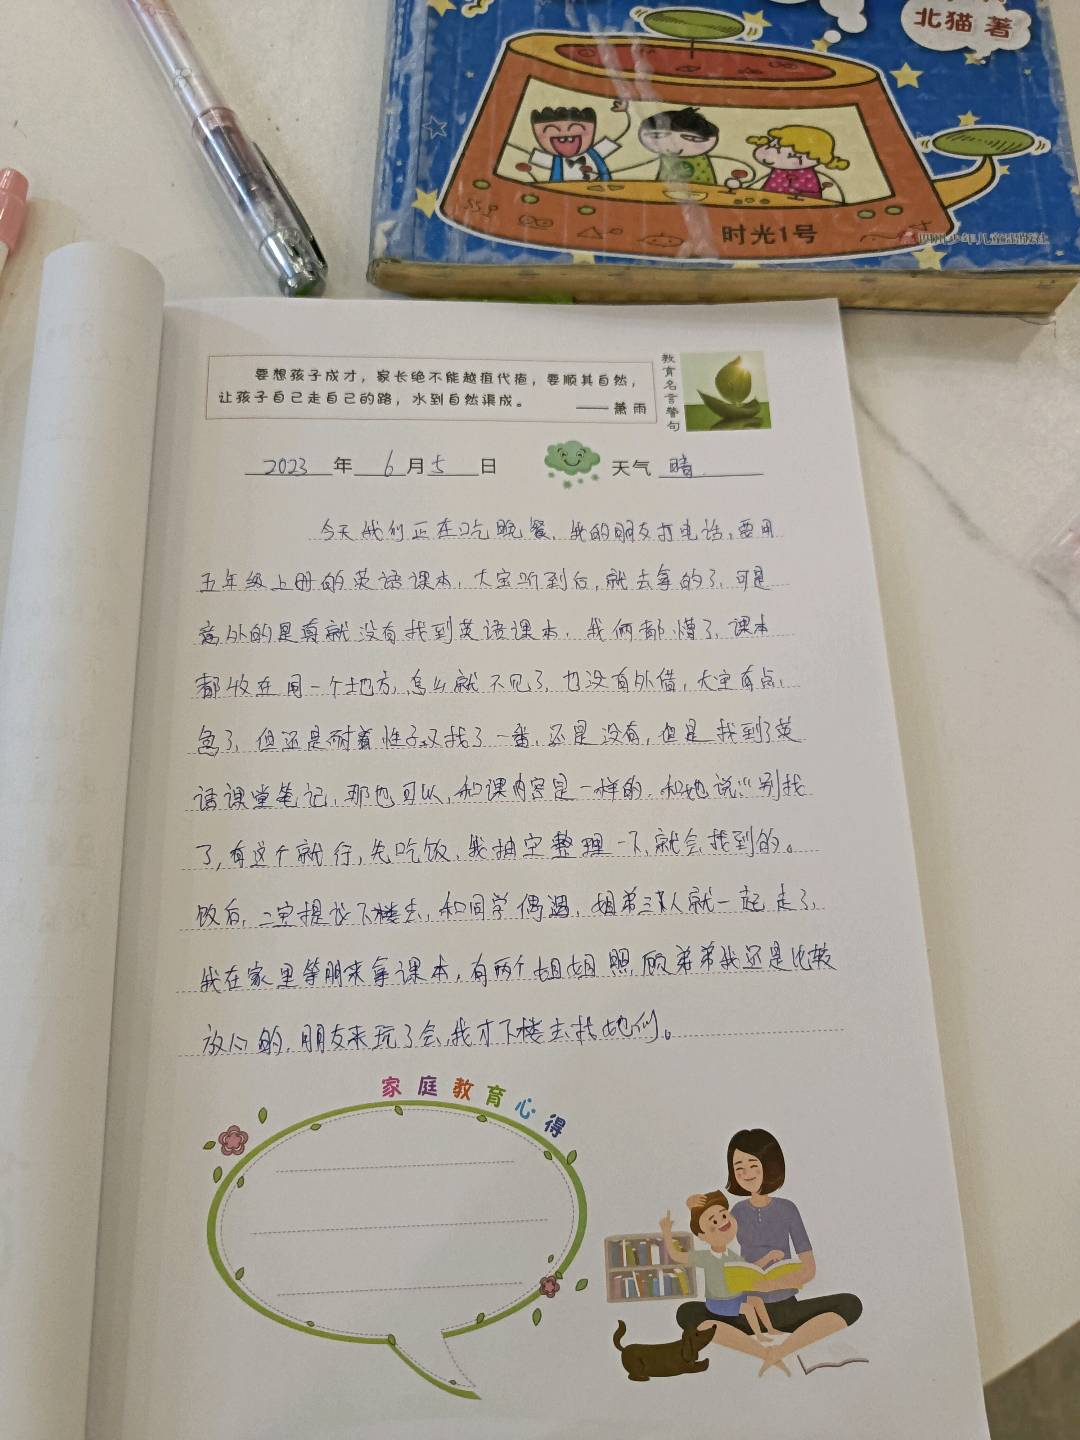 北猫 著
时光1号
四川少年儿童出版社
要想孩子成才，家长绝不能越殖代疱，要顺其自然，
让孩子自己走自己的路，水到自然渠成。 —— 萧雨
教育名言警句
2023 年 6 月 5 日 天气 晴
今天我们正在吃晚餐，我的朋友打电话，要用
五年级上册的英语课本，大宝听到后，就去拿的了，可是
意外的是真就没有找到英语课本，我俩都懵了，课本
都收在同一个地方，怎么就不见了，也没有外借，大宝有点，
急了，但还是耐着性子又找了一番，还是没有，但是找到了英
语课堂笔记，那也可以，和课内容是一样的，和她说“别找
了，有这个就行，先吃饭，我抽空整理一下，就会找到的。
饭后，二宝提议下楼去，和同学偶遇，姐弟三人就一起走了，
我在家里等朋来拿课本，有两个姐姐照顾弟弟我还是比较
放心的，朋友来玩了会，我才下楼去找她们。
家庭教育心得